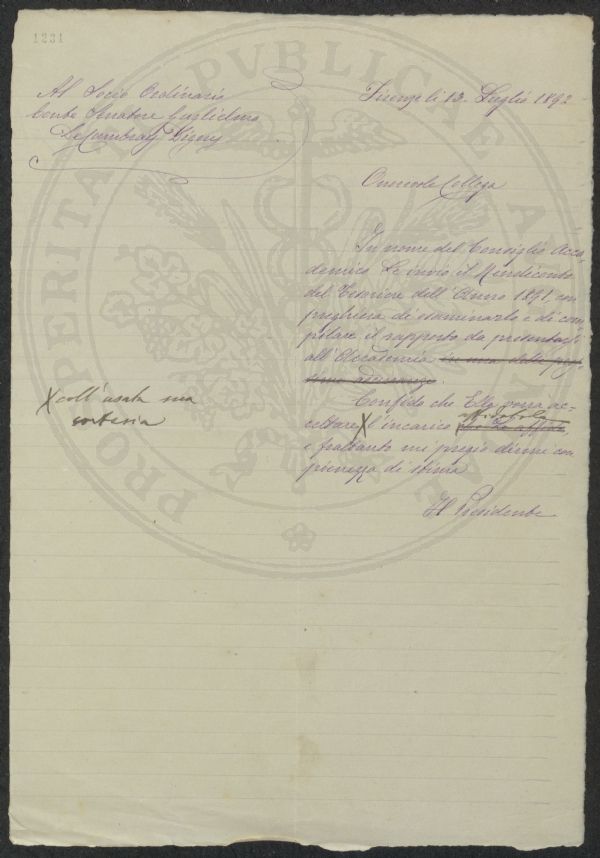 1231
Al Socio Ordinario
Conte Senatore Guglielmo
De Cambray Digny
Firenze li 13. Luglio 1892
Onorevole Collega
In nome del Consiglio Acca-
demico Le invio il Rendiconto
del Tesoriere dell'Anno 1891 con
preghiera di esaminarlo e di com-
pilare il rapporto da presentarsi
all'Accademia in una delle pros-
sime adunanze.
Confido che Ella vorrà ac-
cettare X l'incarico affidatole
X coll'usata sua
cortesia
e frattanto mi pregio dirmi con
pienezza di stima
Il Presidente
PROSPERITATI PUBLICAE AU